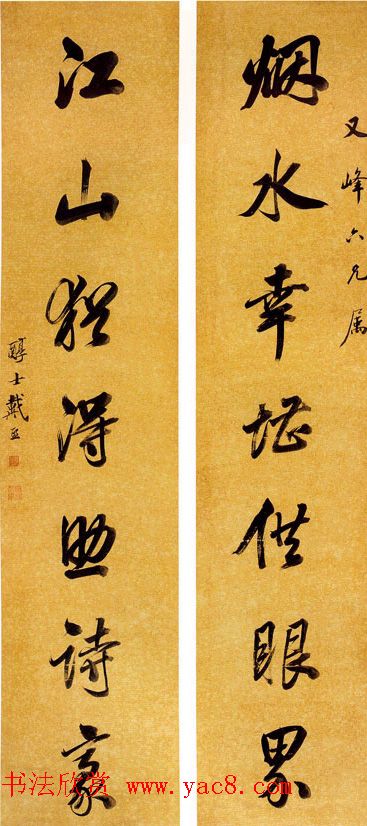 又峰六兄属
烟水幸堪供眼界
江山猶得助詩豪
醇士戴熙
书法欣赏 www.yac8.com